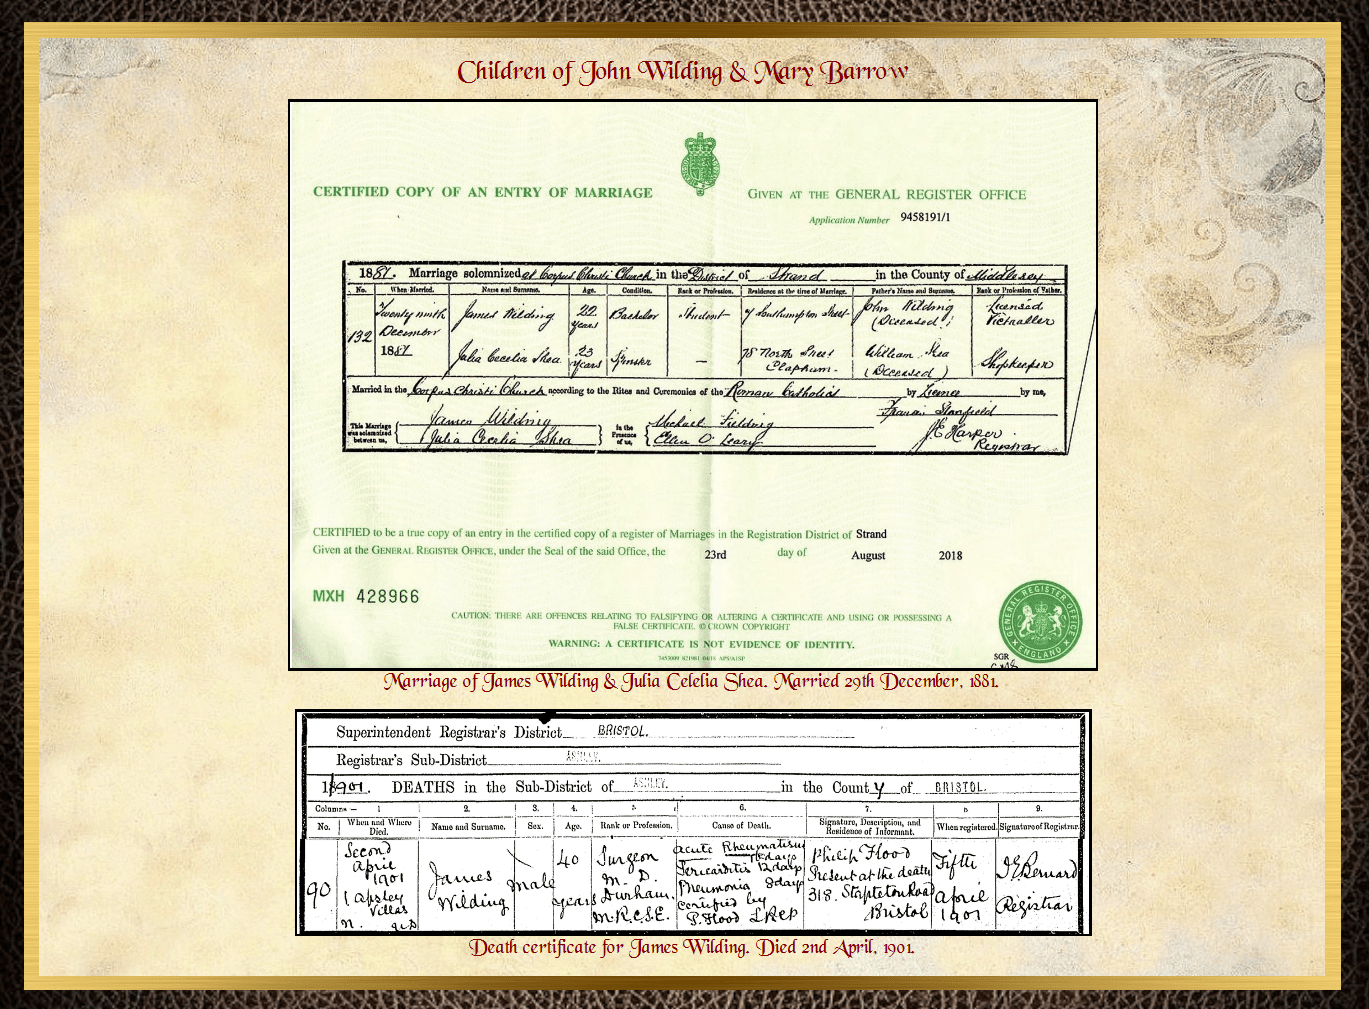 Children of John Wilding & Mary Barrow
CERTIFIED COPY OF AN ENTRY OF MARRIAGE
GIVEN AT THE GENERAL REGISTER OFFICE
Application Number 9458191/1
1881. Marriage solemnized at Corpus Christi Church in the District of Strand in the County of Middlesex
No. When Married. Name and Surname. Age. Condition. Rank or Profession. Residence at the time of Marriage. Father's Name and Surname. Rank or Profession of Father.
132 Twenty ninth December 1881 James Wilding 22 years Bachelor Student 7 Southampton Street John Wilding (Deceased) Licensed Victualler
Julia Cecelia Shea 23 years Spinster — 78 North Street Clapham. William Shea (Deceased) Shopkeeper
Married in the Corpus Christi Church according to the Rites and Ceremonies of the Roman Catholics by License by me,
This Marriage was solemnized between us, James Wilding Julia Cecelia Shea in the Presence of us, Michael Fielding Ellen O'Leary Francis Stanfield J E Harper Registrar
CERTIFIED to be a true copy of an entry in the certified copy of a register of Marriages in the Registration District of Strand
Given at the GENERAL REGISTER OFFICE, under the Seal of the said Office, the 23rd day of August 2018
MXH 428966
CAUTION: THERE ARE OFFENCES RELATING TO FALSIFYING OR ALTERING A CERTIFICATE AND USING OR POSSESSING A
FALSE CERTIFICATE. © CROWN COPYRIGHT
WARNING: A CERTIFICATE IS NOT EVIDENCE OF IDENTITY.
GENERAL REGISTER OFFICE ENGLAND
SGR
Marriage of James Wilding & Julia Celelia Shea. Married 29th December, 1881.
Superintendent Registrar's District BRISTOL.
Registrar's Sub-District ASHLEY.
1901. DEATHS in the Sub-District of ASHLEY. in the County of BRISTOL.
Columns:— 1 2. 3. 4. 5. 6. 7. 8 9.
No. When and Where Died. Name and Surname. Sex. Age. Rank or Profession. Cause of Death. Signature, Description, and Residence of Informant. When registered. Signature of Registrar.
90 Second April 1901 1 Apsley Villas James Wilding Male 40 years Surgeon M.D. Durham. M.R.C.S.E. Acute Rheumatism days Pericarditis 12 days Pneumonia 8 days Certified by P. Flood LRCP Philip Flood Present at the death 318. Stapleton Road Bristol Fifth April 1901 Bernard Registrar
Death certificate for James Wilding. Died 2nd April, 1901.